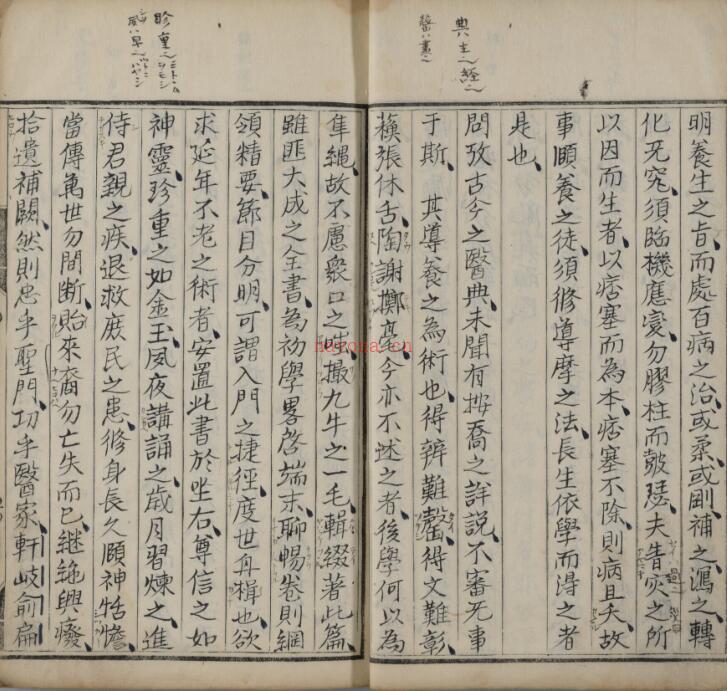 典ハ主也経也
醫ハ書也
明養生之旨而處百病之治或柔或剛補之瀉之轉
化旡窕須臨機應變勿膠柱而皷瑟夫眚灾之所
以因而生者以痞塞而為本痞塞不除則病且夭故
事頤養之徒須修導摩之法長生依學而淂之者
是也
問攷古今之醫典未聞有按喬之詳説不審旡事
于斯其導養之為術也得辨難罄得文難彰
蘓張休舌陶謝擲毫今亦不述之者後學何以為
隼繩故不慮衆口之撮九牛之一毛輯綴著此篇
雖匪大成之全書為初學畧啓端末聊暢卷則綱
領精要節目分明可謂入門之捷徑度世舟楫也欲
求延年不老之術者安置此書於坐右尊信之如
神靈珍重之如金玉夙夜講誦之歳月習煉之進
侍君親之疾退救庶民之患修身長久頤神恬憺
當傳萬世勿間断貽來裔勿亡失而已継絶興癈
拾遺補闕然則忠乎聖門功乎醫家軒岐俞扁
hayona.cn